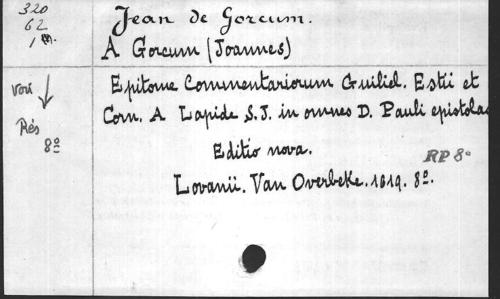 320
62
1 m.
Jean de Gorcum.
A Gorcum (Joannes)
Epitome Commentariorum Guiliel. Estii et
Corn. A Lapide S.J. in omnes D. Pauli epistolas
Editio nova.
Lovanii. Van Overbeke. 1619. 8º.
voir ↓
Rés
8º
RP 8º